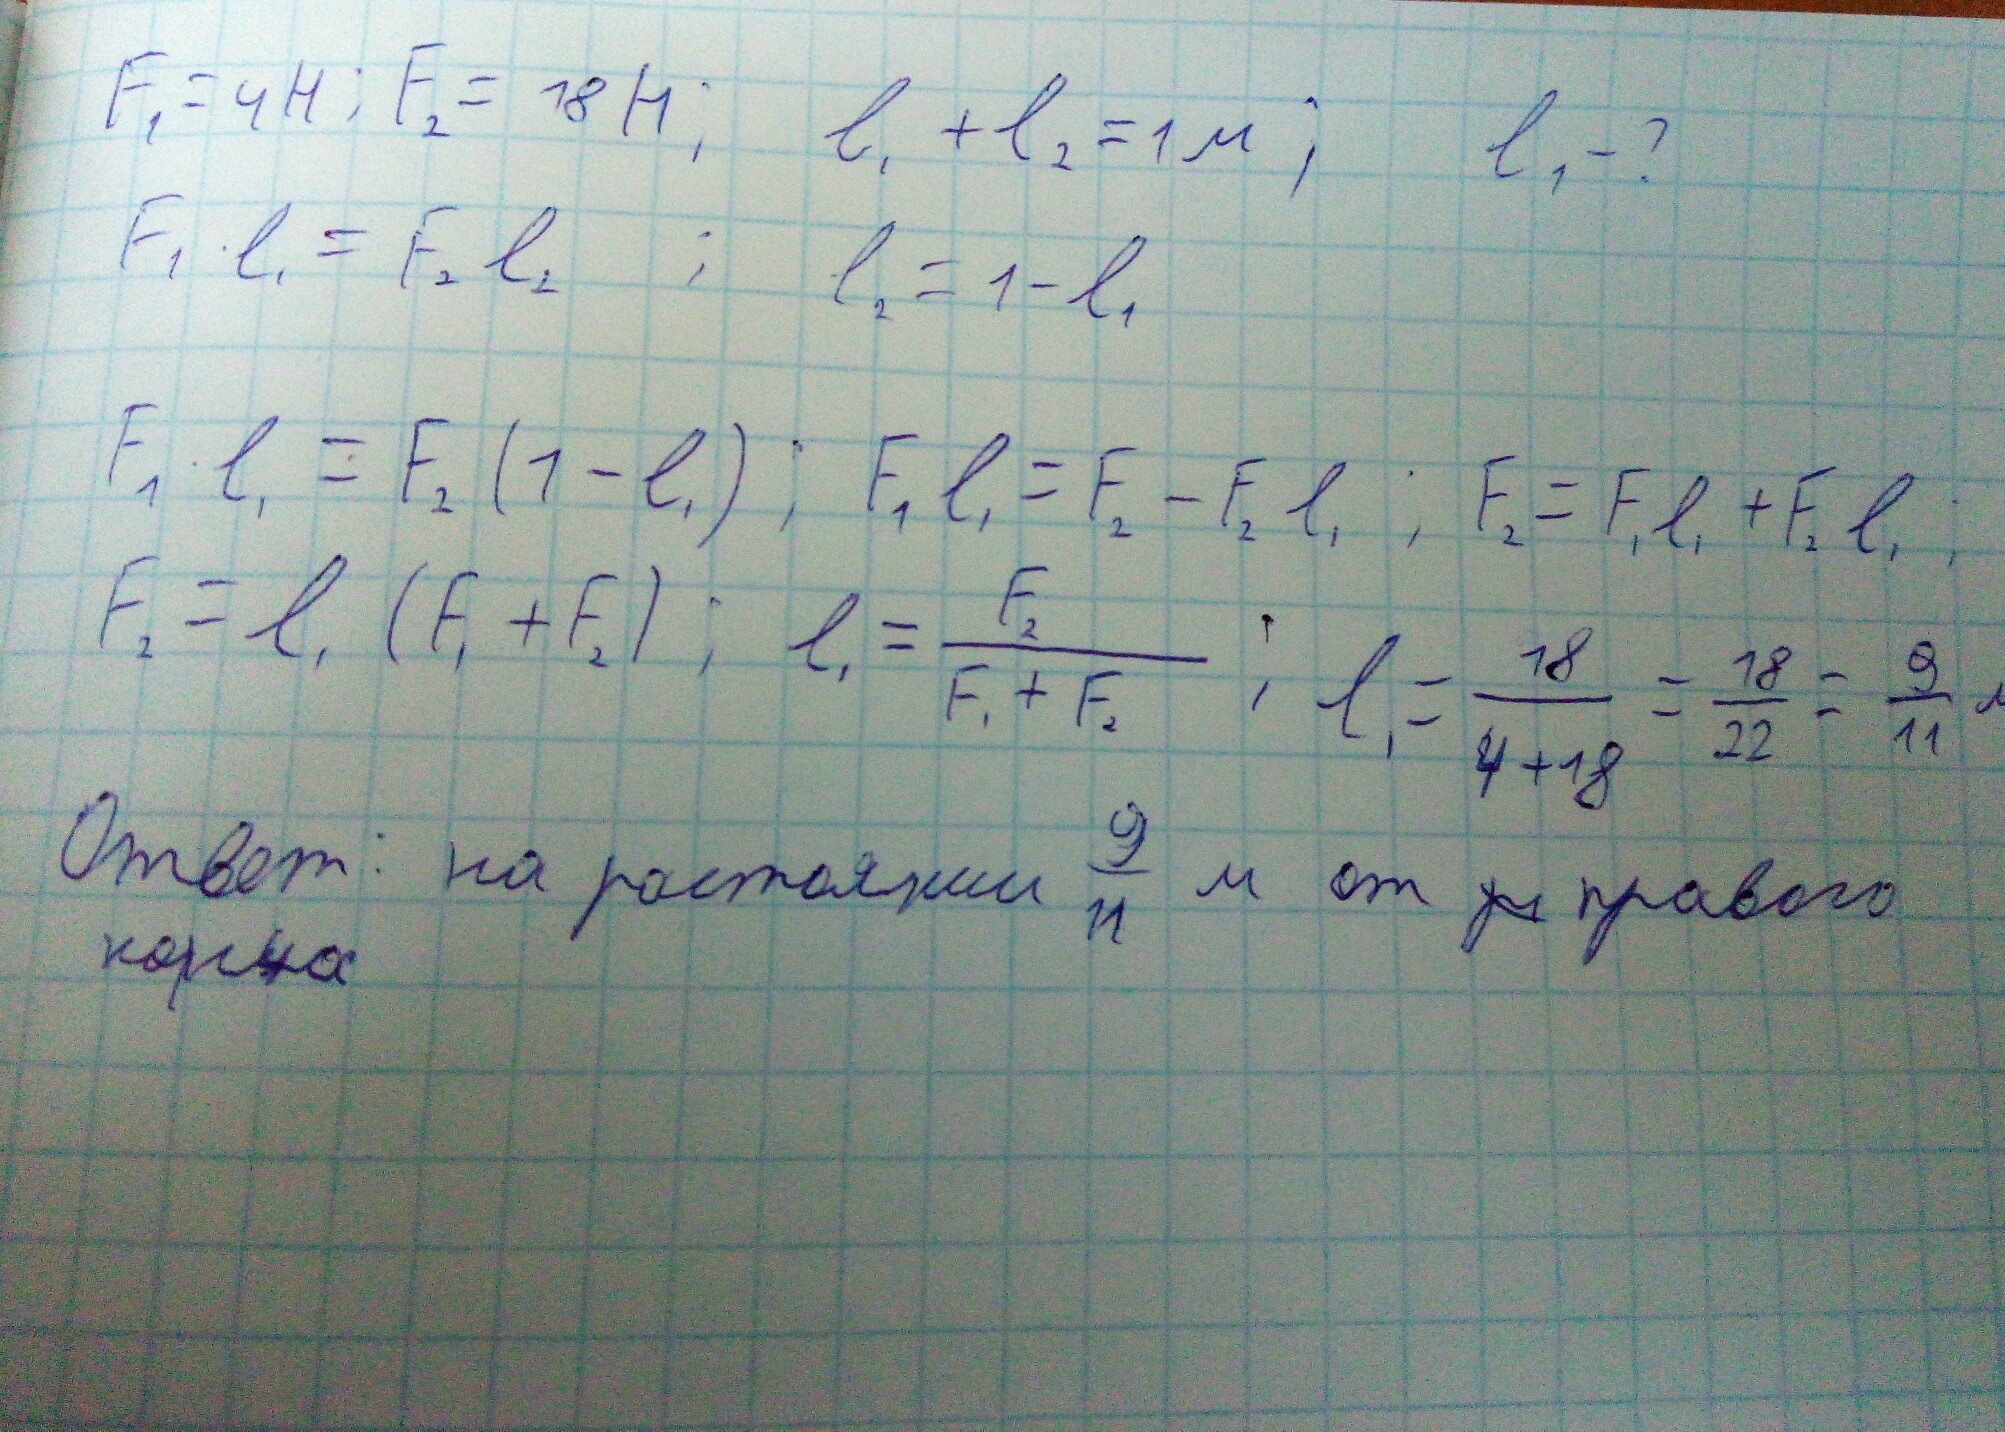 F₁ = 4Н; F₂ = 18Н; l₁ + l₂ = 1м; l₁ - ?
F₁ · l₁ = F₂ l₂ ; l₂ = 1 - l₁
F₁ · l₁ = F₂ (1 - l₁); F₁ l₁ = F₂ - F₂ l₁ ; F₂ = F₁ l₁ + F₂ l₁ ;
F₂ = l₁ (F₁ + F₂); l₁ = F₂ / (F₁ + F₂) ; l₁ = 18 / (4+18) = 18/22 = 9/11 м
Ответ: на растоянии 9/11 м от правого
конца